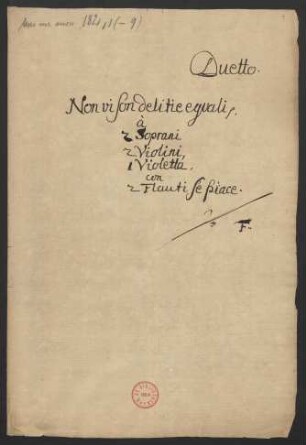 Mus. ms. 1821, 1 (-9)
Duetto.
Non vi son delitie eguali.
à
2 Soprani
2 Violini,
1 Violetta.
con
2 Flauti se piace.
F.